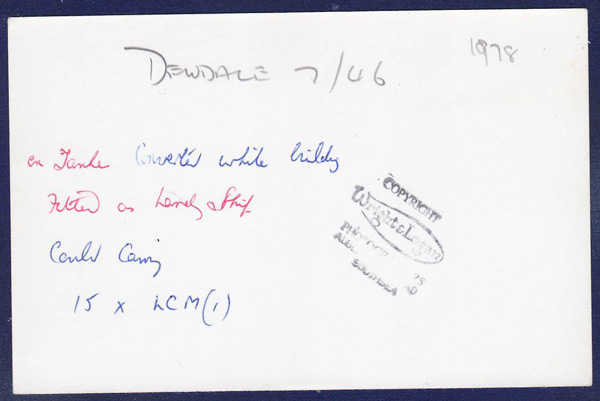 1978
DEWDALE 7/46
en Tanke Converted while building
Fitted as Landg Ship
Could Carry
15 x LCM(1)
COPYRIGHT
Wright & Logan
SOUTHSEA